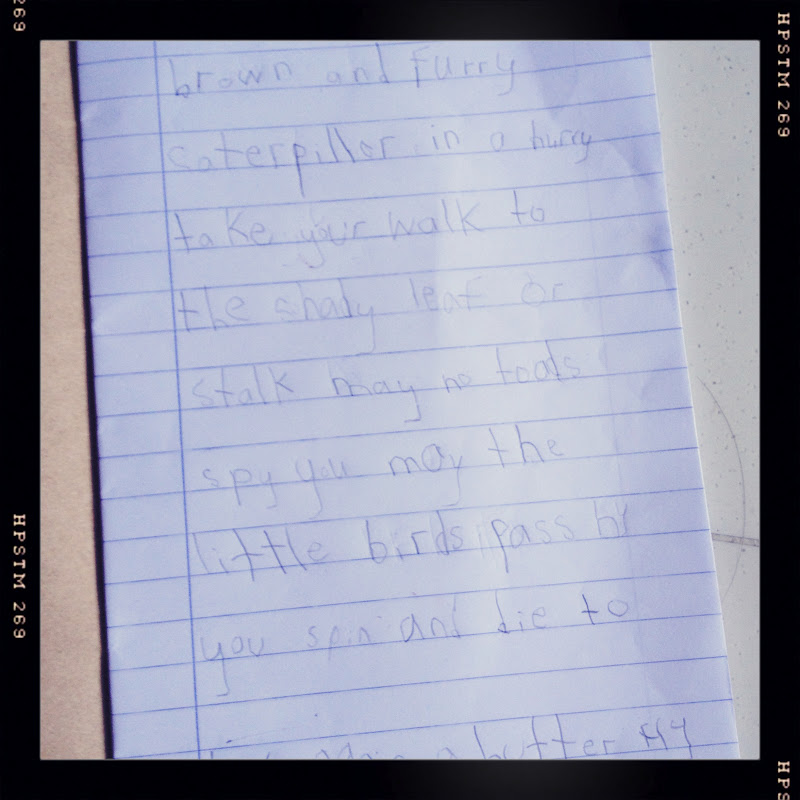 269
HPSTM 269
HPSTM 269
HPS
brown and furry
caterpiller in a hurry
take your walk to
the shady leaf or
stalk may no toads
spy you may the
little birds pass by
you spin and die to
live again a butter fly